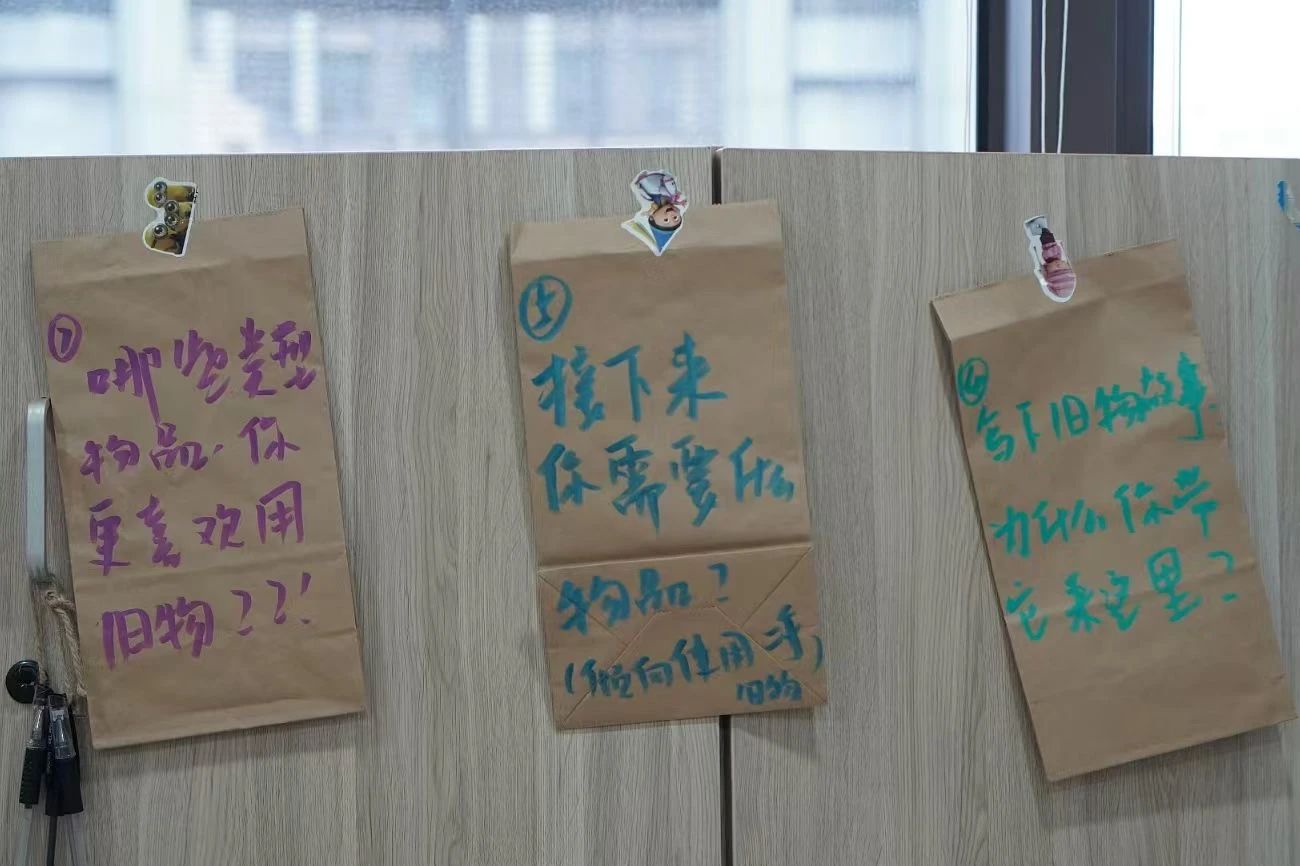 ⑦
哪些类型
物品,你
更喜欢用
旧物???!
⑤
接下来
你需要什么
物品?
(倾向使用二手)
旧物
④
写下旧物故事,
为什么你带
它来这里?